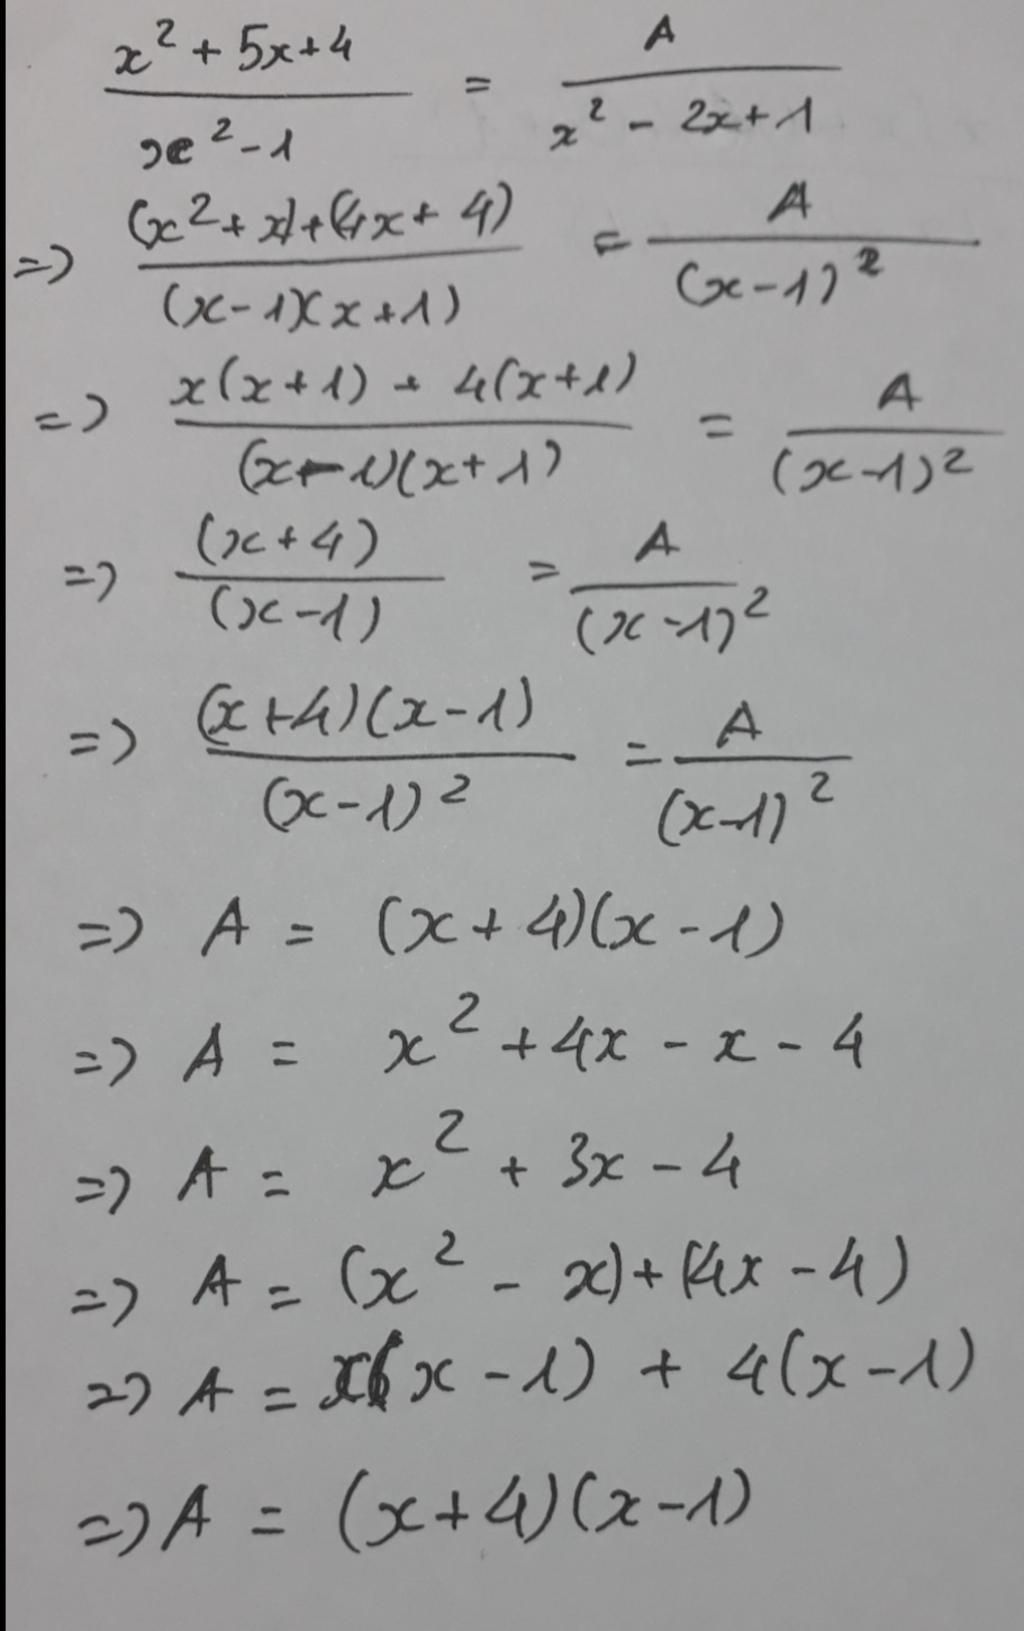 x² + 5x + 4 / x² - 1 = A / x² - 2x + 1
=> (x² + x) + (4x + 4) / (x - 1)(x + 1) = A / (x - 1)²
=> x(x + 1) + 4(x + 1) / (x - 1)(x + 1) = A / (x - 1)²
=> (x + 4) / (x - 1) = A / (x - 1)²
=> (x + 4)(x - 1) / (x - 1)² = A / (x - 1)²
=> A = (x + 4)(x - 1)
=> A = x² + 4x - x - 4
=> A = x² + 3x - 4
=> A = (x² - x) + (4x - 4)
=> A = x(x - 1) + 4(x - 1)
=> A = (x + 4)(x - 1)